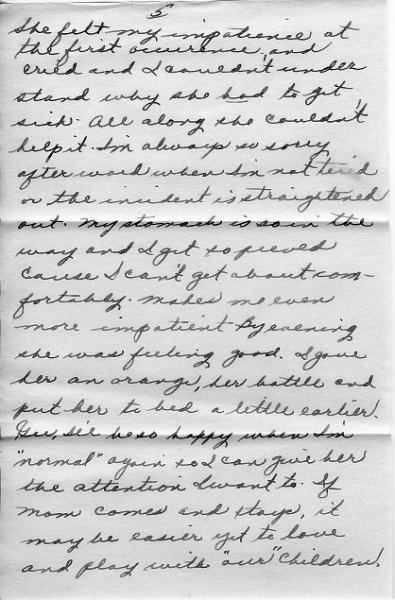 5
She felt my impatience at
the first occurence, and
cried and I couldn't under
stand why she had to get
sick. All along she couldn't
help it. I'm always so sorry
after ward when I'm not tired
or the incident is straightened
out. My stomach is so in the
way and I get so pieved
cause I can't get about com-
fortably. Makes me even
more impatient. By evening
she was feeling good. I gave
her an orange, her bottle and
put her to bed a little earlier.
Gee, I'll be so happy when I'm
"normal" again so I can give her
the attention I want to. If
Mom comes and stays, it
may be easier yet to love
and play with "our" children!